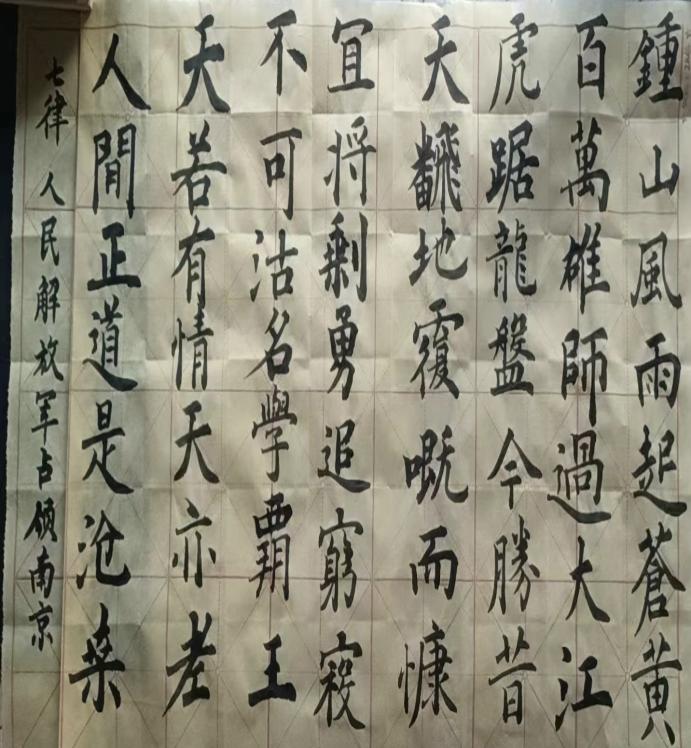 鍾山風雨起蒼黃
百萬雄師過大江
虎踞龍盤今勝昔
天飜地覆嘅而慷
冝将剩勇追窮寇
不可沽名學覇王
天若有情天亦老
人間正道是沧桒
七律 人民解放軍占領南京